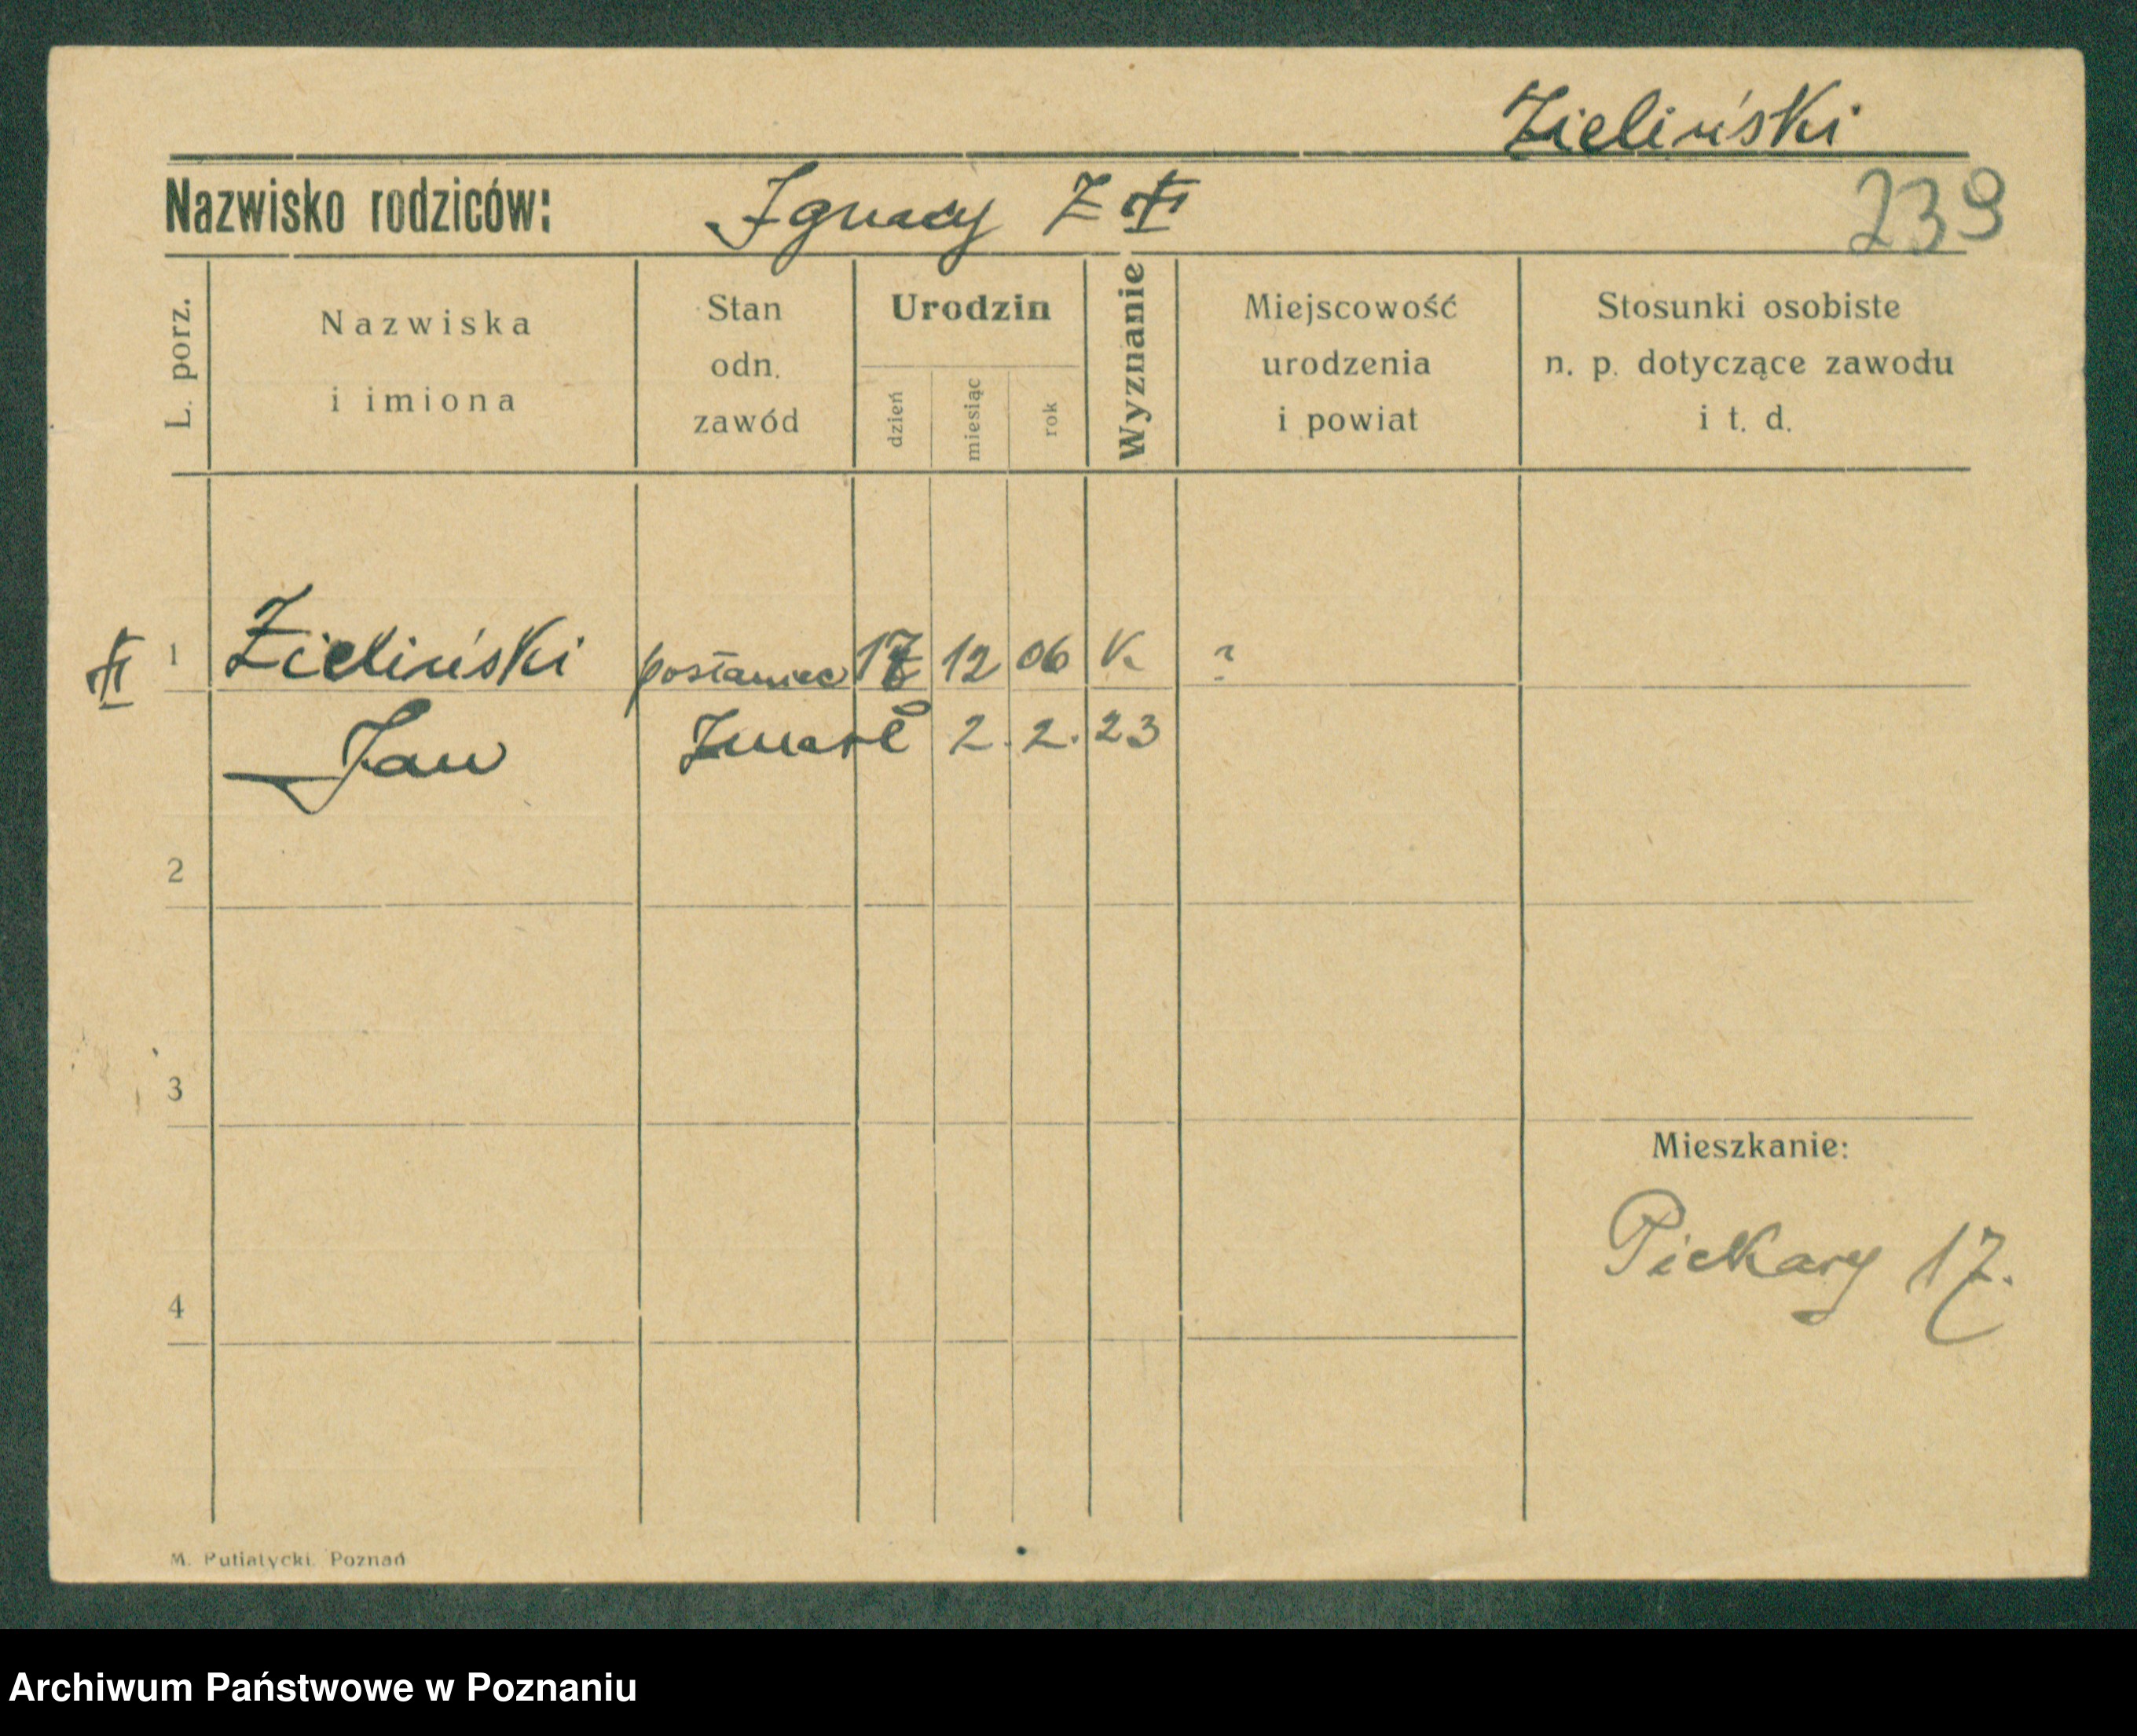 Zieliński
Nazwisko rodziców: Ignacy Z
239
L. porz.
Nazwiska
i imiona
Stan
odn.
zawód
Urodzin
dzień
miesiąc
rok
Wyznanie
Miejscowość
urodzenia
i powiat
Stosunki osobiste
n. p. dotyczące zawodu
i t. d.
1 Zieliński posłaniec 17 12 06 K. ?
Jan Zmarł 2. 2. 23
2
3
Mieszkanie:
Piekary 17.
4
M. Putiatycki. Poznań
Archiwum Państwowe w Poznaniu